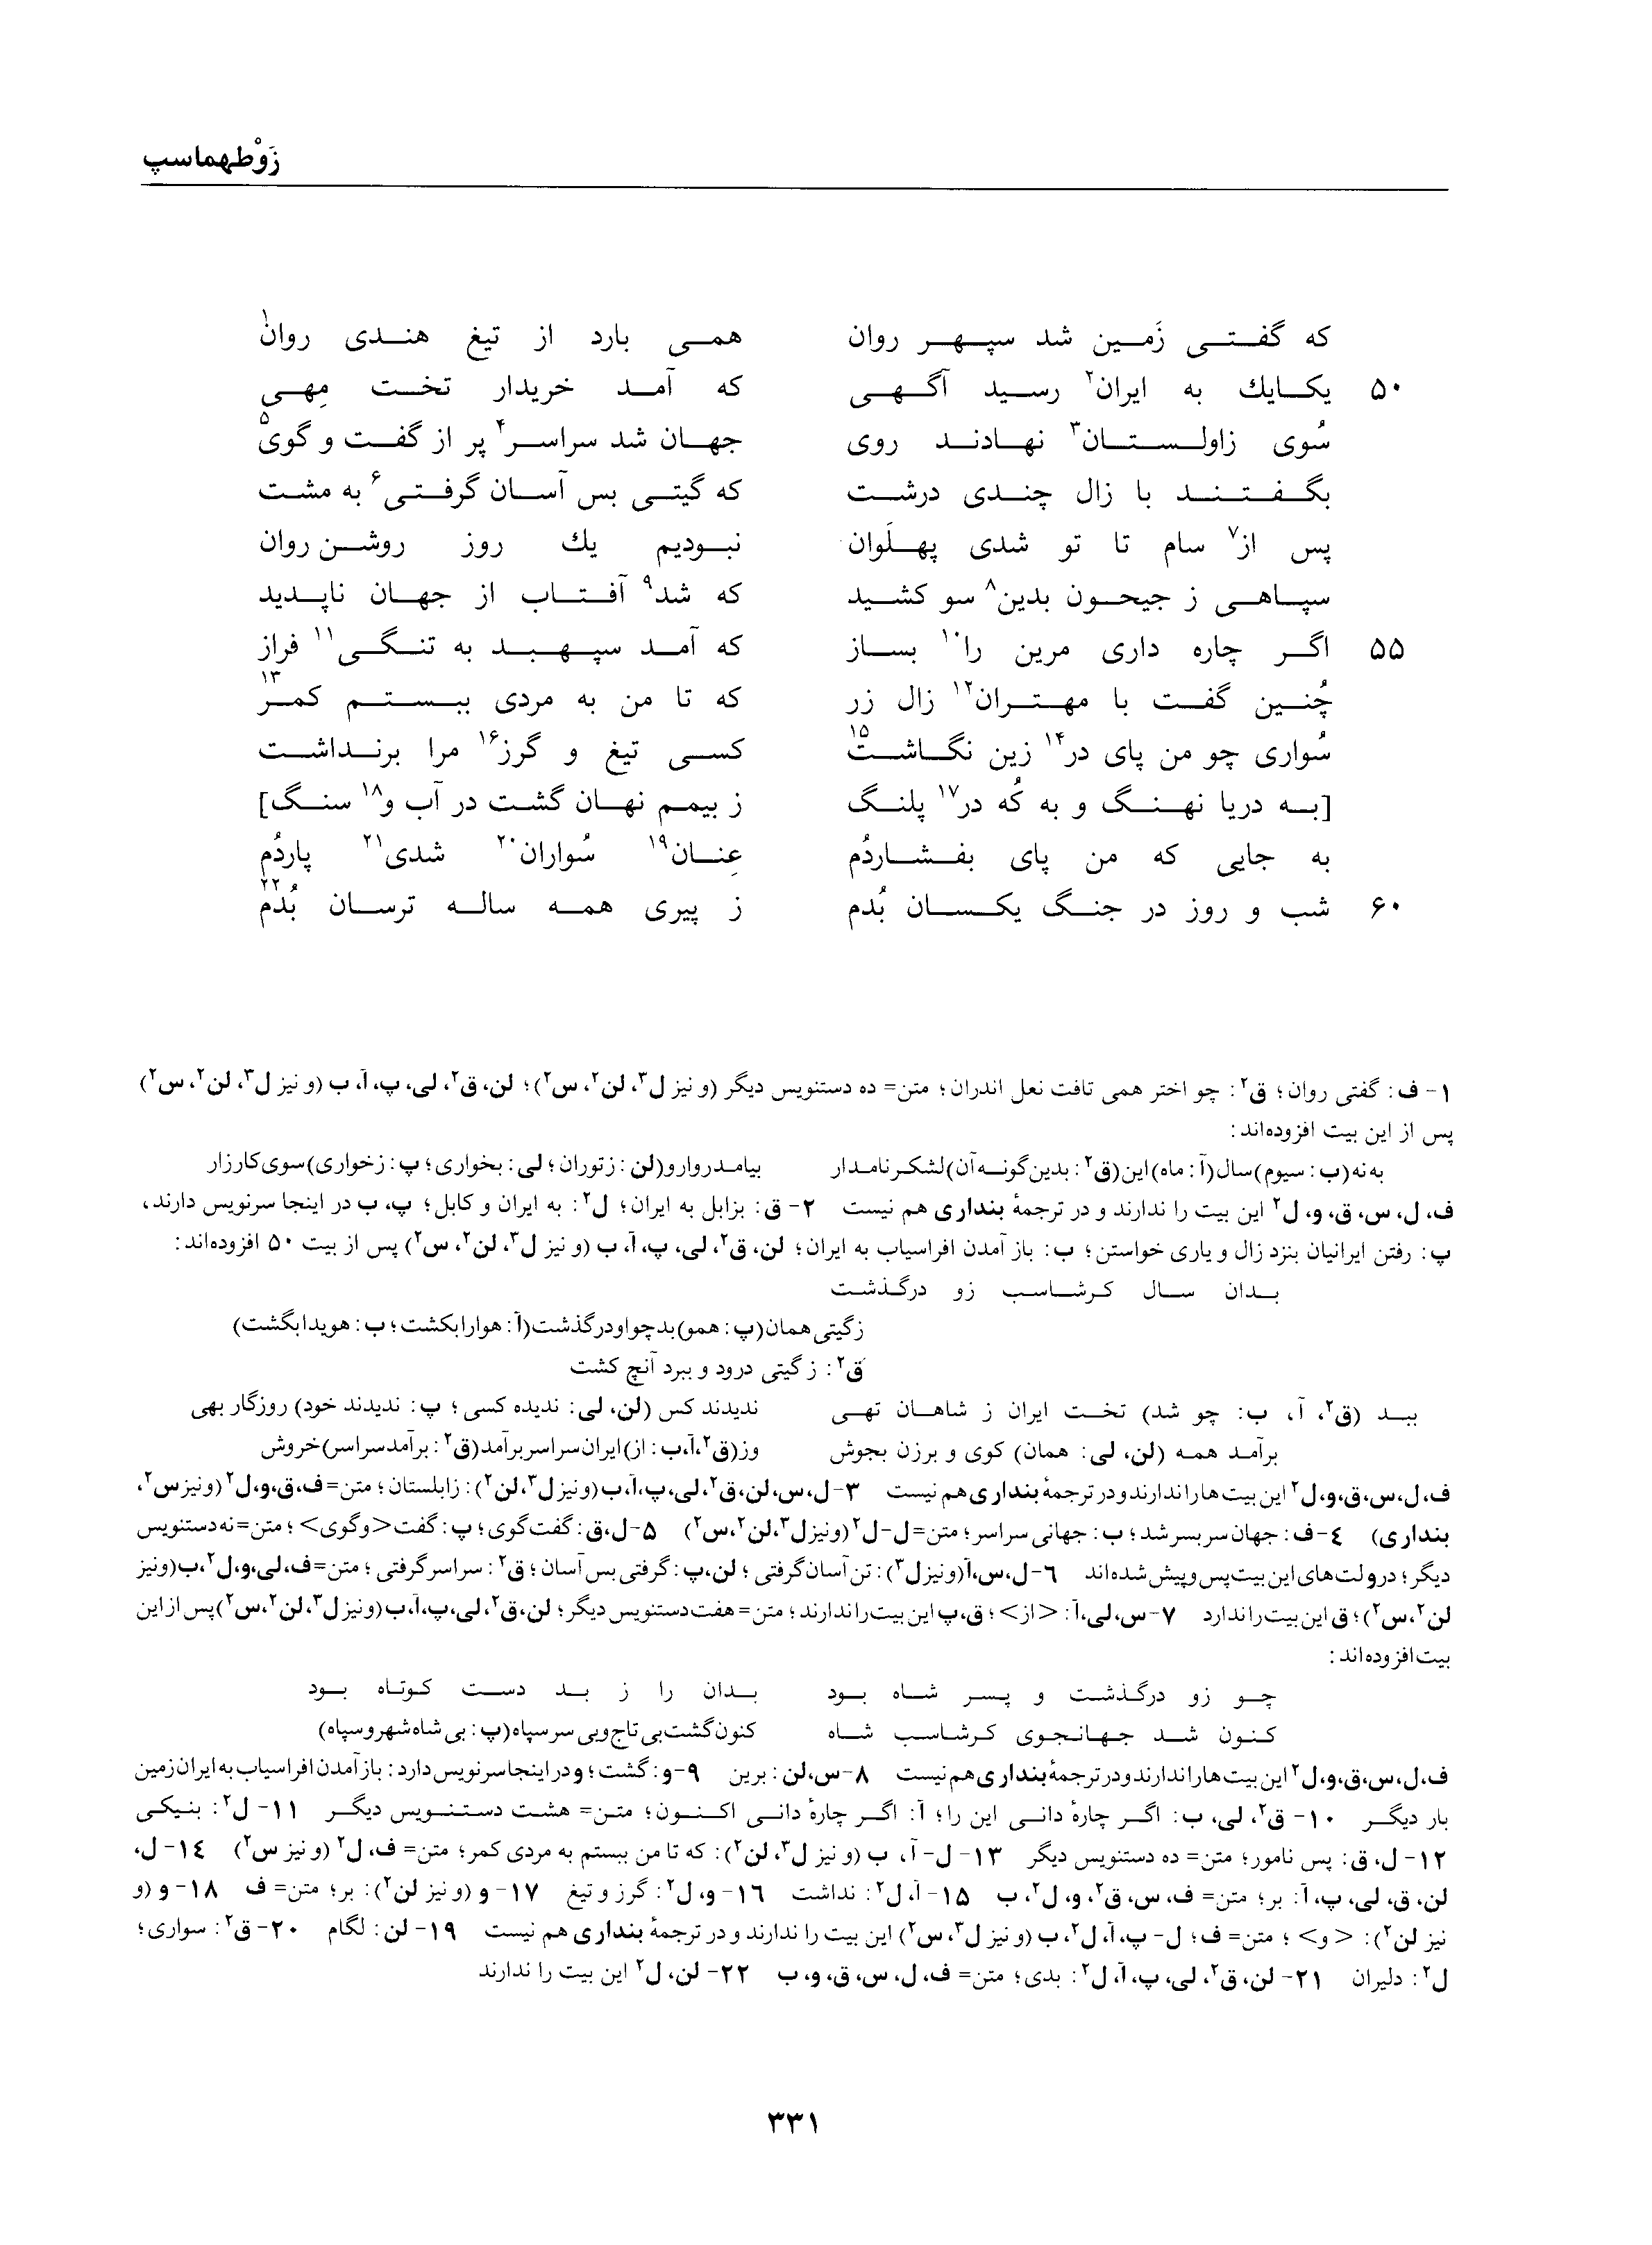 زَوْ طهماسپ
که گفتی زَمین شد سپهر روان همی بارد از تیغ هندی روان۱
۵۰ یکایك به ایران۲ رسید آگهی که آمد خریدار تخت مِهی
سُوی زاولستان۳ نهادند روی جهان شد سراسر۴ پر از گفت و گوی۵
بگفتند با زال چندی درشت که گیتی بس آسان گرفتی۶ به مشت
پس از۷ سام تا تو شدی پهلَوان نبودیم یك روز روشن‌روان
سپاهی ز جیحون بدین۸ سو کشید که شد۹ آفتاب از جهان ناپدید
۵۵ اگر چاره داری مرین را۱۰ بساز که آمد سپهبد به تنگی۱۱ فراز
چُنین گفت با مهتران۱۲ زال زر که تا من به مردی ببستم کمر۱۳
سُواری چو من پای در۱۴ زین نگاشت۱۵ کسی تیغ و گرز۱۶ مرا برنداشت
[به دریا نهنگ و به کُه در۱۷ پلنگ ز بیمم نهان گشت در آب و۱۸ سنگ]
به جایی که من پای بفشاردُم عِنان۱۹ سُواران۲۰ شدی۲۱ پاردُم
۶۰ شب و روز در جنگ یکسان بُدم ز پیری همه ساله ترسان بُدم۲۲
۱- ف: گفتی روان؛ ق۲: چو اختر همی تافت نعل اندران؛ متن= ده دستنویس دیگر (و نیز ل۳، لن۲، س۲)؛ لن، ق۲، لی، پ، آ، ب (و نیز ل۳، لن۲، س۲)
پس از این بیت افزوده‌اند:
به نه (ب: سیوم) سال (آ: ماه) این (ق۲: بدین گونه آن) لشکر نامدار بیامد روارو (لن: ز توران؛ لی: بخواری؛ پ: ز خواری) سوی کارزار
ف، ل، س، ق، و، ل۲ این بیت را ندارند و در ترجمهٔ بنداری هم نیست ۲- ق: بزابل به ایران؛ ل۲: به ایران و کابل؛ پ، ب در اینجا سرنویس دارند،
پ: رفتن ایرانیان بنزد زال و یاری خواستن؛ ب: باز آمدن افراسیاب به ایران؛ لن، ق۲، لی، پ، آ، ب (و نیز ل۳، لن۲، س۲) پس از بیت ۵۰ افزوده‌اند:
بدان سال کرشاسب زو درگذشت
زگیتی همان (پ: همو) بد چو او درگذشت (آ: هوارا بکشت؛ ب: هویدا بگشت)
ق۲: ز گیتی درود و ببرد آنچ کشت
ببد (ق۲، آ، ب: چو شد) تخت ایران ز شاهان تهی ندیدند کس (لن، لی: ندیده کسی؛ پ: ندیدند خود) روزگار بهی
برآمد همه (لن، لی: همان) کوی و برزن بجوش وز (ق۲، آ، ب: از) ایران سراسر برآمد (ق۲: برآمد سراسر) خروش
ف، ل، س، ق، و، ل۲ این بیت‌ها را ندارند و در ترجمهٔ بنداری هم نیست ۳- ل، س، لن، ق۲، لی، پ، آ، ب (و نیز ل۳، لن۲): زابلستان؛ متن= ف، ق، و، ل۲ (و نیز س۲،
بنداری) ۴- ف: جهان سربسر شد؛ ب: جهانی سراسر؛ متن= ل-ل۲ (و نیز ل۳، لن۲، س۲) ۵- ل، ق: گفت گوی؛ پ: گفت <و گوی>؛ متن= نه دستنویس
دیگر؛ در و لت‌های این بیت پس و پیش شده‌اند ۶- ل، س، آ (و نیز ل۳): تن آسان گرفتی؛ لن، پ: گرفتی بس آسان؛ ق۲: سراسر گرفتی؛ متن= ف، لی، و، ل۲، ب (و نیز
لن۲، س۲)؛ ق این بیت را ندارد ۷- س، لی، آ: <از>؛ ق، پ این بیت را ندارند؛ متن= هفت دستنویس دیگر؛ لن، ق۲، لی، پ، آ، ب (و نیز ل۳، لن۲، س۲) پس از این
بیت افزوده‌اند:
چو زو درگذشت و پسر شاه بود بدان را ز بد دست کوتاه بود
کنون شد جهانجوی کرشاسب شاه کنون گشت بی تاج و بی سر سپاه (پ: بی شاه شهر و سپاه)
ف، ل، س، ق، و، ل۲ این بیت‌ها را ندارند و در ترجمهٔ بنداری هم نیست ۸- س، لن: برین ۹- و: گشت؛ و در اینجا سرنویس دارد: باز آمدن افراسیاب به ایران زمین
بار دیگر ۱۰- ق۲، لی، ب: اگر چارهٔ دانی این را؛ آ: اگر چارهٔ دانی اکنون؛ متن= هشت دستنویس دیگر ۱۱- ل۲: بنیکی
۱۲- ل، ق: پس نامور؛ متن= ده دستنویس دیگر ۱۳- ل- آ، ب (و نیز ل۳، لن۲): که تا من ببستم به مردی کمر؛ متن= ف، ل۲ (و نیز س۲) ۱۴- ل،
لن، ق، لی، پ، آ: بر؛ متن= ف، س، ق۲، و، ل۲، ب ۱۵- آ، ل۲: نداشت ۱۶- و، ل۲: گرز و تیغ ۱۷- و (و نیز لن۲): بر؛ متن= ف ۱۸- و (و
نیز لن۲): <و>؛ متن= ف؛ ل- پ، آ، ل۲، ب (و نیز ل۳، س۲) این بیت را ندارند و در ترجمهٔ بنداری هم نیست ۱۹- لن: لگام ۲۰- ق۲: سواری؛
ل۲: دلیران ۲۱- لن، ق۲، لی، پ، آ، ل۲: بدی؛ متن= ف، ل، س، ق، و، ب ۲۲- لن، ل۲ این بیت را ندارند
۳۳۱